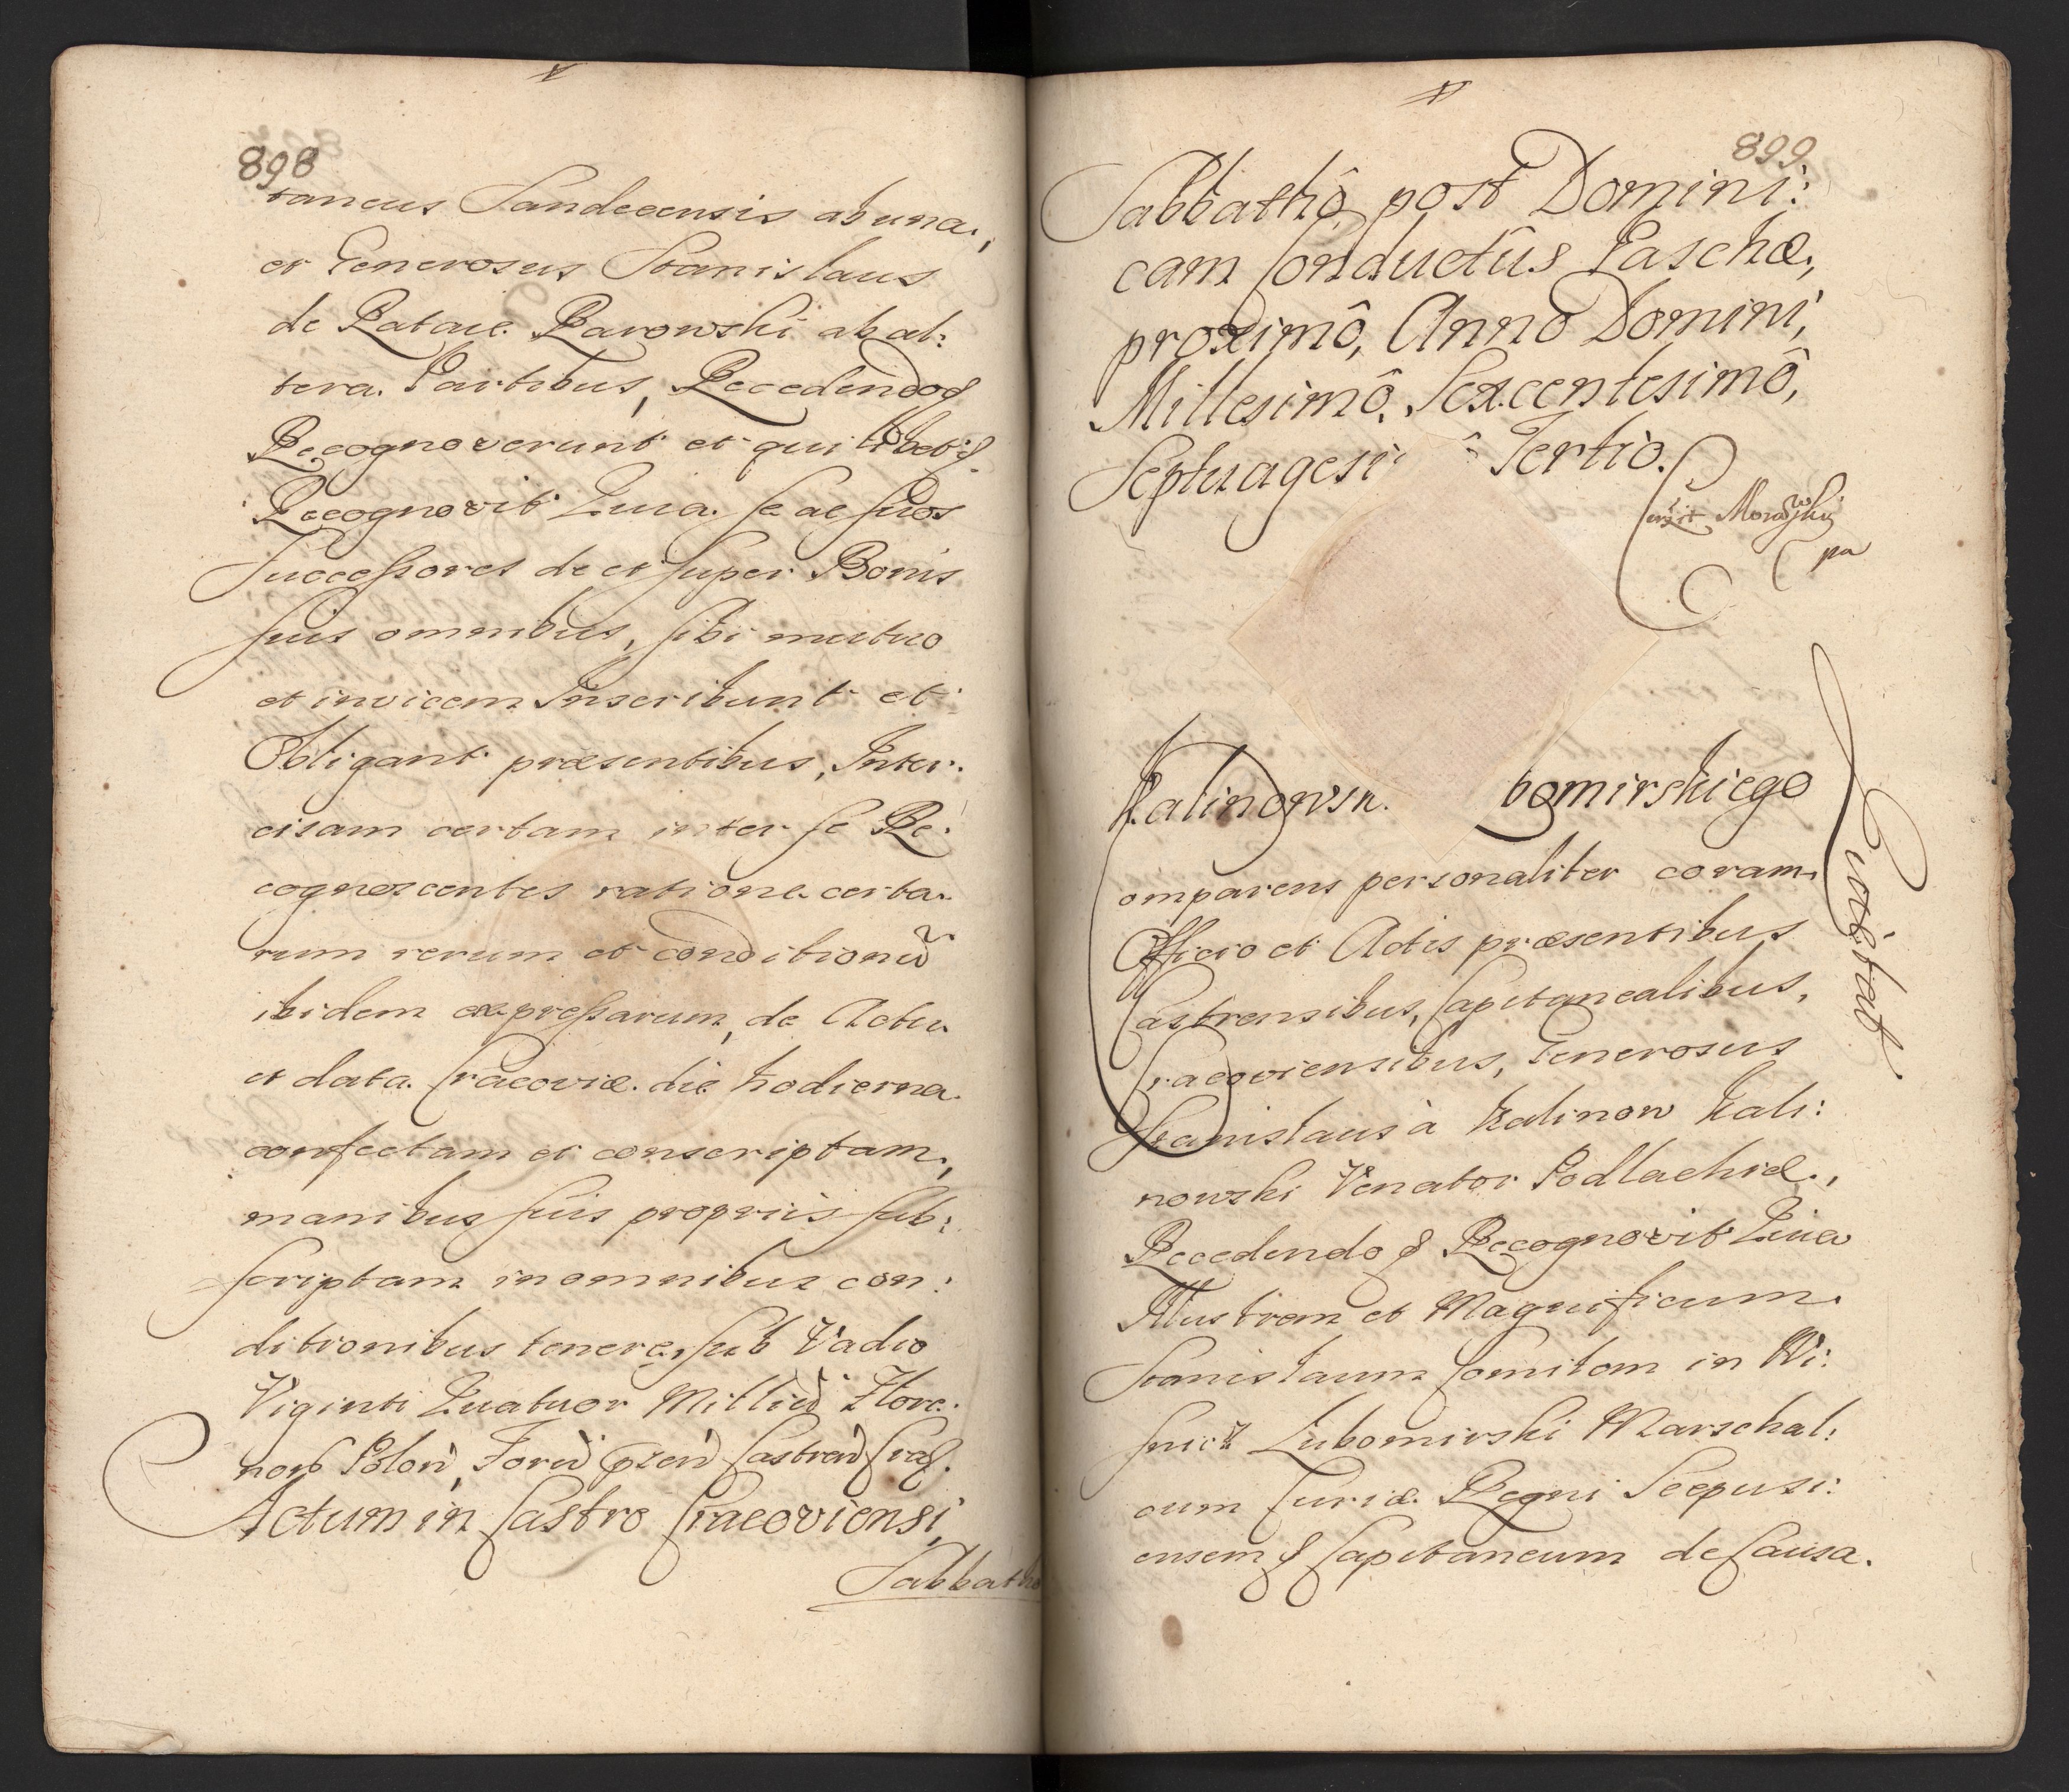 898
taneus Sandecensis ab una,
et Generosus Stanislaus
de Rataie Rarowski ab al:
tera Partibus, Recedendo &
Recognoverunt et quilibet &
Recognovit Quia se ac suos
Successores de et super Bonis
suis omnibus, sibi mutuo
et invicem Inscribunt et
Obligant præsentibus, Inter:
cisam certam inter se Re:
cognoscentes ratione certa:
rum rerum et conditionũ
ibidem expressarum, de Actu
et data Cracoviæ die hodierna
confectam et conscriptam,
manibus suis propriis sub:
scriptam in omnibus con:
ditionibus tenere, sub Vadio
Viginti Quatuor Milliũ Flore:
Polon, Forũ Castren Crac.
Actum in Castro Cracoviensi,
Sabbatho
899
Sabbathô post Domini:
cam Conductûs Paschæ,
proximô, Annô Domini,
Millesimô, Sexcentesimô,
Septuagesi Tertio.
Morawski
Kalinowsk bomirskiego
omparens personaliter coram
Officio et Actis præsentibus
Castrensibus, Capitanealibus,
Cracoviensibus, Generosus
Stanislaus à Kalinow Kali:
nowski Venator Podlachiæ,
Recedendo & Recognovit Quia
Illustrem et Magnificum
Stanislaum Comitem in Wi:
śnicz Lubomirski Marschal:
cum Curiæ Regni Scepusi:
ensem & Capitaneum de Causa